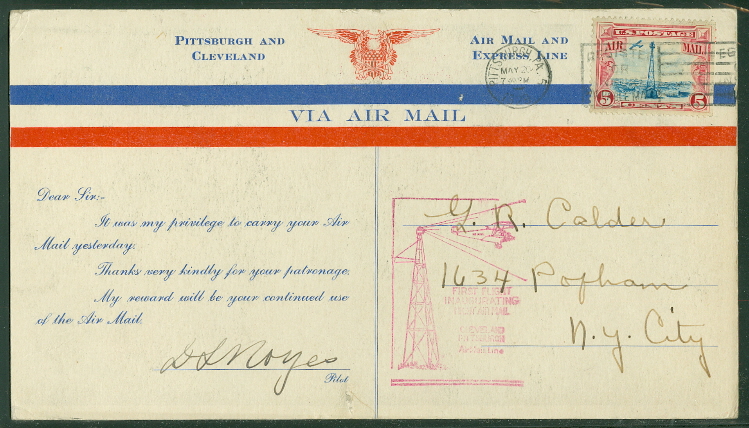 PITTSBURGH AND
CLEVELAND
AIR MAIL AND
EXPRESS LINE
U.S. POSTAGE
AIR MAIL
5 CENTS 5
PITTSBURGH, PA.
MAY
VIA AIR MAIL
Dear Sir:-
It was my privilege to carry your Air
Mail yesterday.
Thanks very kindly for your patronage.
My reward will be your continued use
of the Air Mail.
D L Noyes
Pilot
G. R. Calder
1634 Popham
N.Y. City
FIRST FLIGHT
INAUGURATING
AIR MAIL
CLEVELAND
PITTSBURGH
Air Mail Line